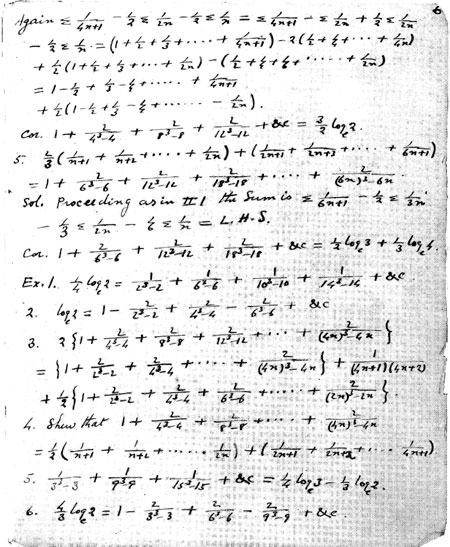 6
Again Σ 1/(4n+1) - 1/2 Σ 1/2n - 1/2 Σ 1/n = Σ 1/(4n+1) - Σ 1/2n + 1/2 Σ 1/2n
- 1/2 Σ 1/n = (1 + 1/2 + 1/3 + ..... + 1/(4n+1)) - 2(1/2 + 1/4 + ... + 1/4n)
+ 1/2(1 + 1/2 + 1/3 + ... + 1/2n) - (1/2 + 1/4 + 1/6 + ..... + 1/2n)
= 1 - 1/2 + 1/3 - 1/4 + ..... + 1/(4n+1)
+ 1/2(1 - 1/2 + 1/3 - 1/4 + ...... - 1/2n).
Cor. 1 + 2/(4³-4) + 2/(8³-8) + 2/(12³-12) + &c = 3/2 logₑ2.
5. 2/3(1/(n+1) + 1/(n+2) + .... + 1/2n) + (1/(2n+1) + 1/(2n+3) + .... + 1/(6n+1))
= 1 + 2/(6³-6) + 2/(12³-12) + 2/(18³-18) + .... + 2/((6n)³-6n)
Sol. Proceeding as in II 1 the Sum is Σ 1/(6n+1) - 1/2 Σ 1/3n
- 1/3 Σ 1/2n - 1/6 Σ 1/n = L.H.S.
Cor. 1 + 2/(6³-6) + 2/(12³-12) + 2/(18³-18) + &c = 1/2 logₑ3 + 1/3 logₑ4.
Ex. 1. 1/4 logₑ2 = 1/(2³-2) + 1/(6³-6) + 1/(10³-10) + 1/(14³-14) + &c
2. logₑ2 = 1 - 2/(2³-2) + 2/(4³-4) - 2/(6³-6) + &c
3. 2{1 + 2/(4³-4) + 2/(8³-8) + 2/(12³-12) + ... + 2/((4n)³-4n)}
= {1 + 2/(2³-2) + 2/(4³-4) + .... + 2/((4n)³-4n)} + 1/((4n+1)(4n+2))
+ 1/2{1 + 2/(2³-2) + 2/(4³-4) + 2/(6³-6) + ... + 2/((2n)³-2n)}.
4. Shew that 1 + 2/(4³-4) + 2/(8³-8) + .... + 2/((4n)³-4n)
= 1/2(1/(n+1) + 1/(n+2) + ..... 1/2n) + (1/(2n+1) + 1/(2n+2) + .... 1/(4n+1))
5. 1/(3³-3) + 1/(9³-9) + 1/(15³-15) + &c = 1/4 logₑ3 - 1/3 logₑ2.
6. 4/3 logₑ2 = 1 - 2/(3³-3) + 2/(6³-6) - 2/(9³-9) + &c.